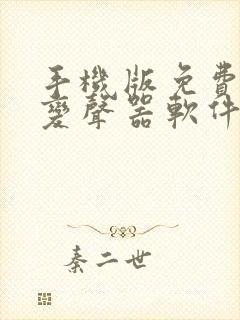 手機版免費
變聲器軟件
秦二世